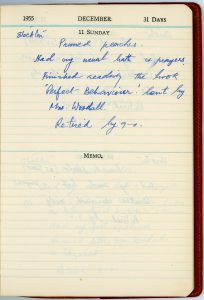 1955 DECEMBER 31 DAYS
11 SUNDAY
Pruned peaches.
Had my usual bath & prayers.
Finished reading the book
"Perfect Behaviour" lent by
Mrs. Woodall.
Retired by 9-0.
MEMO.